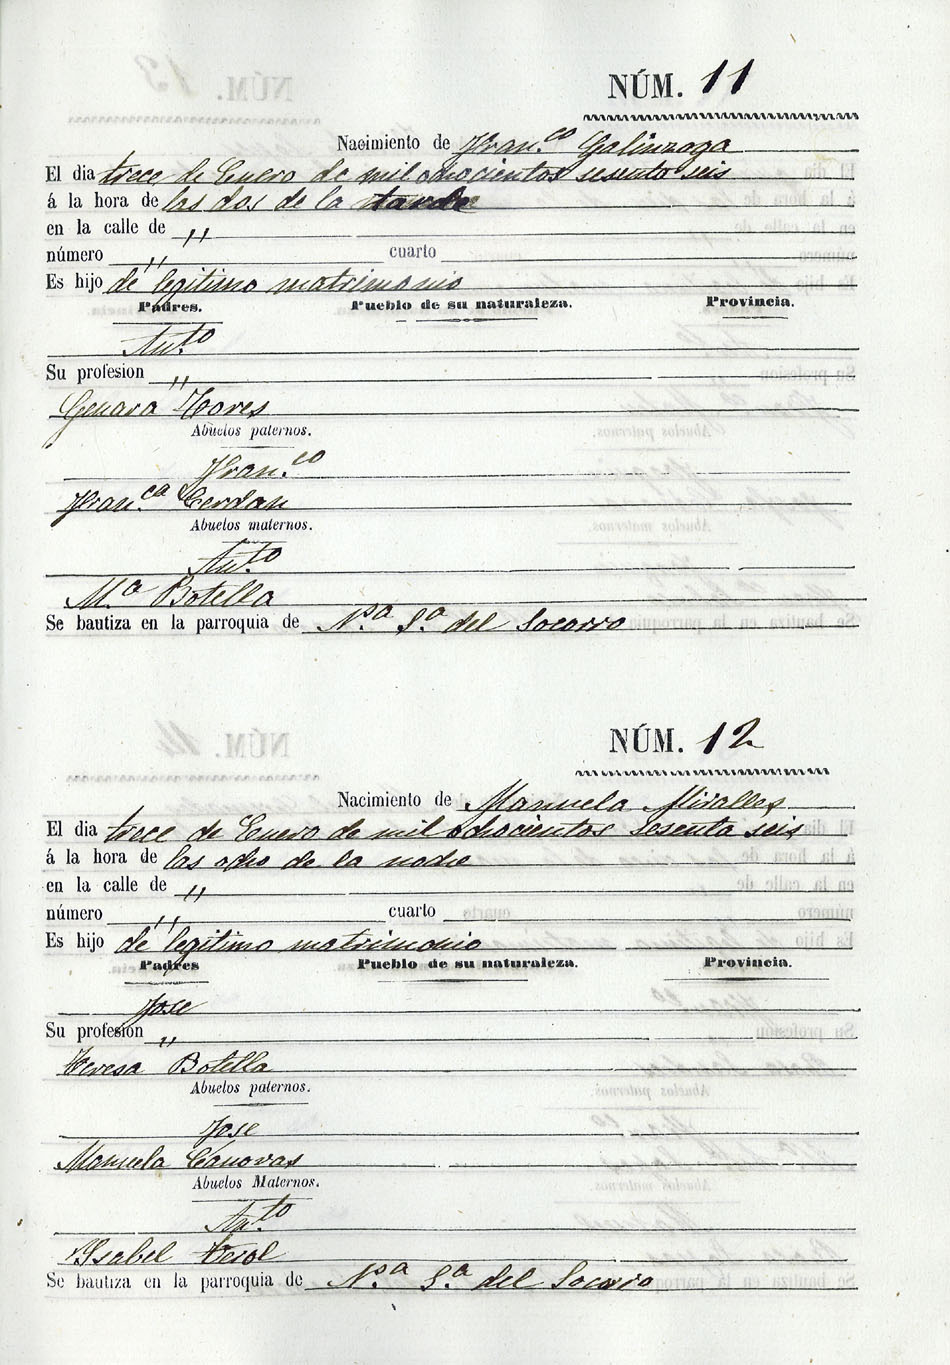 NÚM. 11
Nacimiento de Fran.co Galinzoga
El dia trece de Enero de mil ochocientos sesenta seis
á la hora de las dos de la tarde
en la calle de "
número " cuarto
Es hijo de legitimo matrimonio
Padres. Pueblo de su naturaleza. Provincia.
Ant.o
Su profesion "
Genara Tores
Abuelos paternos.
Fran.co
Fran.ca Cerdan
Abuelos maternos.
Ant.o
M.a Botella
Se bautiza en la parroquia de N.a S.a del Socorro
NÚM. 12
Nacimiento de Manuela Miralles
El dia trece de Enero de mil ochocientos sesenta seis
á la hora de las ocho de la noche
en la calle de "
número " cuarto
Es hijo de legitimo matrimonio
Padres Pueblo de su naturaleza. Provincia.
Jose
Su profesión "
Teresa Botella
Abuelos paternos.
Jose
Manuela Canovas
Abuelos Maternos.
Ant.o
Ysabel Terol
Se bautiza en la parroquia de N.a S.a del Socorro